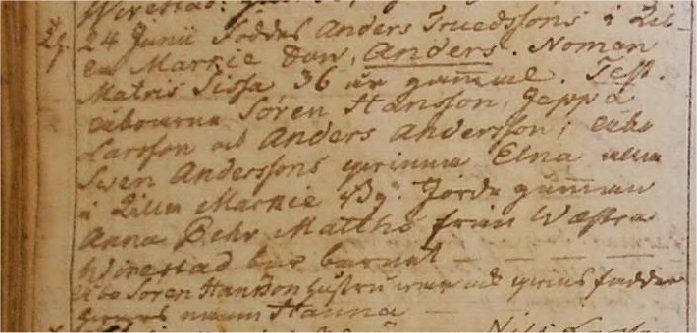 Wirestad.
29. 24 Junii Föddes Anders Truedssons i Lil-
la Markie Son, Anders. Nomen
Matris Sissa, 36 år gammal. Test.
åeboerne Sören Hansson, Jeppa
Larsson och Anders Andersson; åebo
Swen Anderssons qwinna Elna
i Lilla Markie By. Jordegumman
Anna Pehr Matths från Wästra
Wirestad bar barnet — — — —
åebo Sören Hansson hustru war ock
namn Hanna —